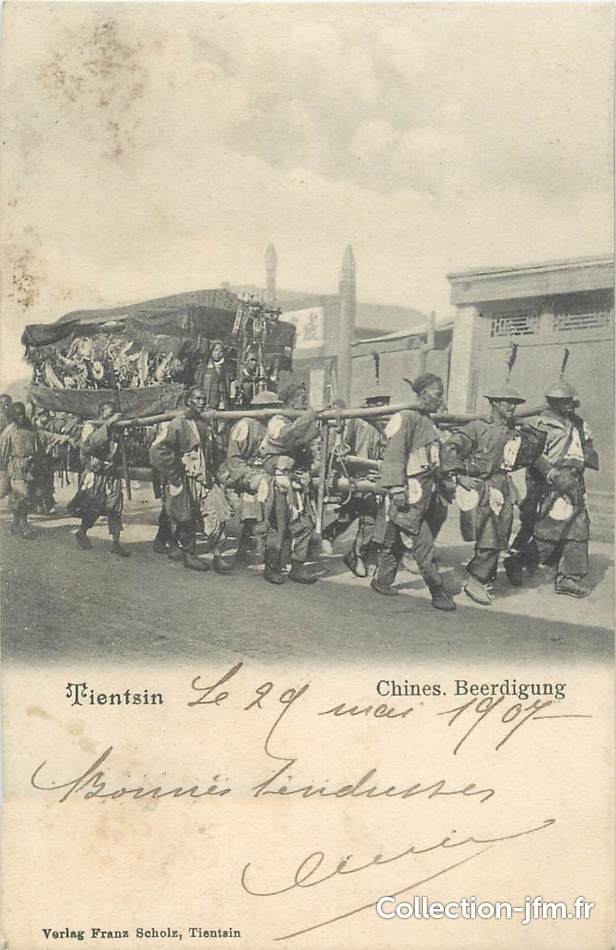 Tientsin
Chines. Beerdigung
Le 29 mai 1907
Bonnes tendresses
Verlag Franz Scholz, Tientsin
Collection-jfm.fr